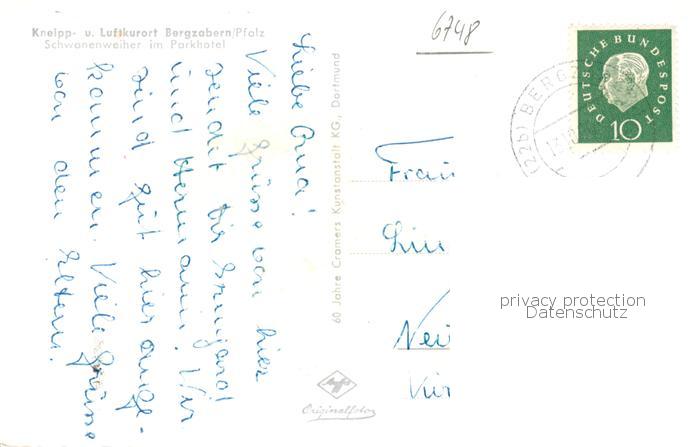 Kneipp- u. Luftkurort Bergzabern/Pfalz
Schwanenweiher im Parkhotel
Liebe Oma!
Viele Grüsse von hier
sendet dir Irmgard
und Hermann. Wir
sind gut hier ange-
kommen. Viele Grüsse
von den Eltern.
60 Jahre Cramers Kunstanstalt KG., Dortmund
Agfa
Originalfoto
6748
(22b) BERGZ
DEUTSCHE BUNDESPOST
10
Frau
Lin
Neu
privacy protection
Datenschutz